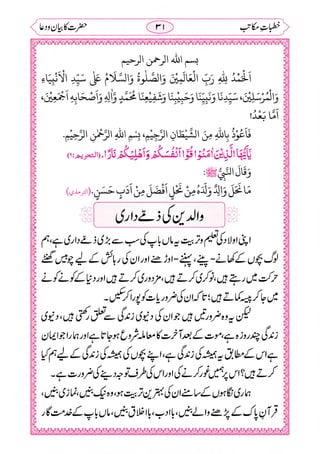 خطباتِ مکاتب ۳۱ حضرت کا بیان و دعا
بسم الله الرحمن الرحيم
اَلْحَمْدُ لِلّٰهِ رَبِّ الْعَالَمِيْنَ وَالصَّلٰوةُ وَالسَّلَامُ عَلٰى سَيِّدِ الْاَنْبِيَاءِ
وَالْمُرْسَلِيْنَ، سَيِّدِنَا وَنَبِيِّنَا وَحَبِيْبِنَا وَشَفِيْعِنَا مُحَمَّدٍ وَّاٰلِهٖ وَاَصْحَابِهٖ اَجْمَعِيْنَ،
اَمَّا بَعْدُ!
فَاَعُوْذُ بِاللّٰهِ مِنَ الشَّيْطَانِ الرَّجِيْمِ، بِسْمِ اللّٰهِ الرَّحْمٰنِ الرَّحِيْمِ.
يٰٓاَيُّهَا الَّذِيْنَ اٰمَنُوْا قُوْٓا اَنْفُسَكُمْ وَاَهْلِيْكُمْ نَارًا. (التحریم:۶)
وَقَالَ النَّبِيُّ ﷺ:
مَا نَحَلَ وَالِدٌ وَلَدَهٗ مِنْ نُحْلٍ اَفْضَلَ مِنْ اَدَبٍ حَسَنٍ. (الترمذی)
والدین کی ذمے داری
اپنی اولاد کی تعلیم و تربیت یہ ماں باپ کی سب سے بڑی ذمے داری ہے، ہم
بچوں کے کھانے - پینے، پہننے - اوڑھنے اور ان کی رہائش کے لیے چوبیس گھنٹے
حرکت میں رہتے ہیں، نوکری کرتے ہیں، مزدوری کرتے ہیں اور دنیا کے کونے کونے
میں جا کر پیسے کماتے ہیں؛ تاکہ ان کی ضروریات کو پورا کر سکیں۔
لیکن یہ وہ ضرورتیں ہیں جو ان کی دنیوی زندگی سے تعلق رکھتی ہیں، دنیوی
زندگی چند روزہ ہے، موت کے بعد آخرت کا معاملہ شروع ہو جاتا ہے اور ہمارا جو ایمان
ہے اس کے مطابق یہ ہمیشہ کی زندگی ہے، اپنے بچوں کی ہمیشہ کی زندگی کے لیے ہم کیا
کرتے ہیں؟ اس پر ہمیں غور کرنے کی اور اس کی طرف توجہ دینے کی ضرورت ہے۔
ہماری نگاہوں کے سامنے ان کی بہترین تربیت ہو، وہ نیک بنیں، نمازی بنیں،
قرآنِ پاک کے پڑھنے والے بنیں، باادب، بااخلاق بنیں، ماں باپ کے خدمت گار